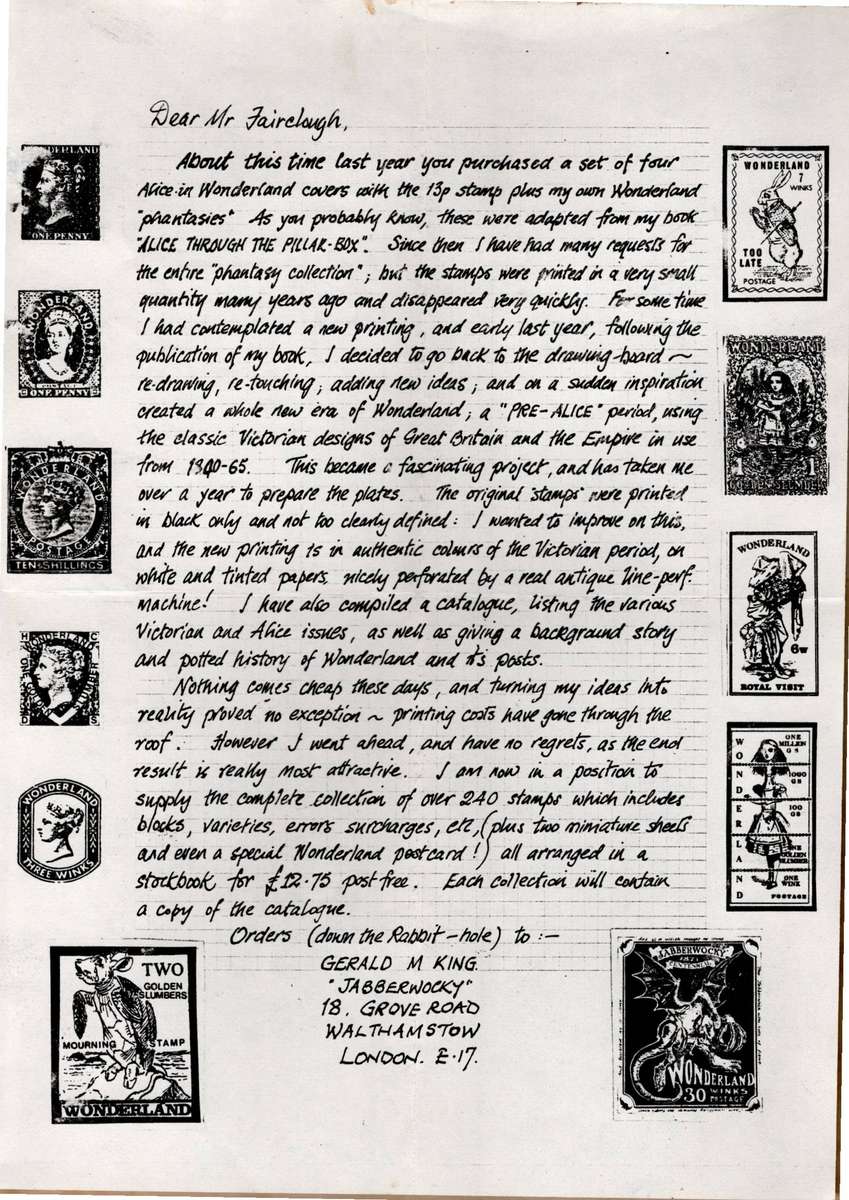 Dear Mr Fairclough,
About this time last year you purchased a set of four
Alice in Wonderland covers with the 13p stamp plus my own Wonderland
"phantasies" As you probably know, these were adapted from my book
"ALICE THROUGH THE PILLAR-BOX". Since then I have had many requests for
the entire "phantasy collection"; but the stamps were printed in a very small
quantity many years ago and disappeared very quickly. For some time
I had contemplated a new printing, and early last year, following the
publication of my book, I decided to go back to the drawing-board ~
re-drawing, re-touching; adding new ideas; and on a sudden inspiration
created a whole new era of Wonderland; a "PRE-ALICE" period, using
the classic Victorian designs of Great Britain and the Empire in use
from 1840-65. This became a fascinating project, and has taken me
over a year to prepare the plates. The original 'stamps' were printed
in black only and not too clearly defined: I wanted to improve on this,
and the new printing is in authentic colours of the Victorian period, on
white and tinted papers, nicely perforated by a real antique line-perf.
machine! I have also compiled a catalogue, listing the various
Victorian and Alice issues, as well as giving a background story
and potted history of Wonderland and it's posts.
Nothing comes cheap these days, and turning my ideas into
reality proved no exception ~ printing costs have gone through the
roof. However I went ahead, and have no regrets, as the end
result is really most attractive. I am now in a position to
supply the complete collection of over 240 stamps which includes
blocks, varieties, errors surcharges, etc, (plus two miniature sheets
and even a special Wonderland postcard!) all arranged in a
stockbook for £12.75 post free. Each collection will contain
a copy of the catalogue.
Orders (down the Rabbit-hole) to :-
GERALD M KING.
"JABBERWOCKY"
18. GROVE ROAD
WALTHAMSTOW
LONDON. E.17.
ONE PENNY
WONDERLAND
POSTAGE
ONE PENNY
WONDERLAND
POSTAGE
TEN SHILLINGS
WONDERLAND
WONDERLAND
THREE WINKS
TWO
GOLDEN
SLUMBERS
MOURNING STAMP
WONDERLAND
WONDERLAND
7
WINKS
TOO
LATE
POSTAGE
WONDERLAND
1 1
WONDERLAND
6w
ROYAL VISIT
WONDERLAND
ONE
MILLION
GS
1000
GS
100
GS
ONE
GOLDEN
SLUMBER
ONE
WINK
POSTAGE
JABBERWOCKY
1871
CENTENNIAL
WONDERLAND
30 WINKS
POSTAGE